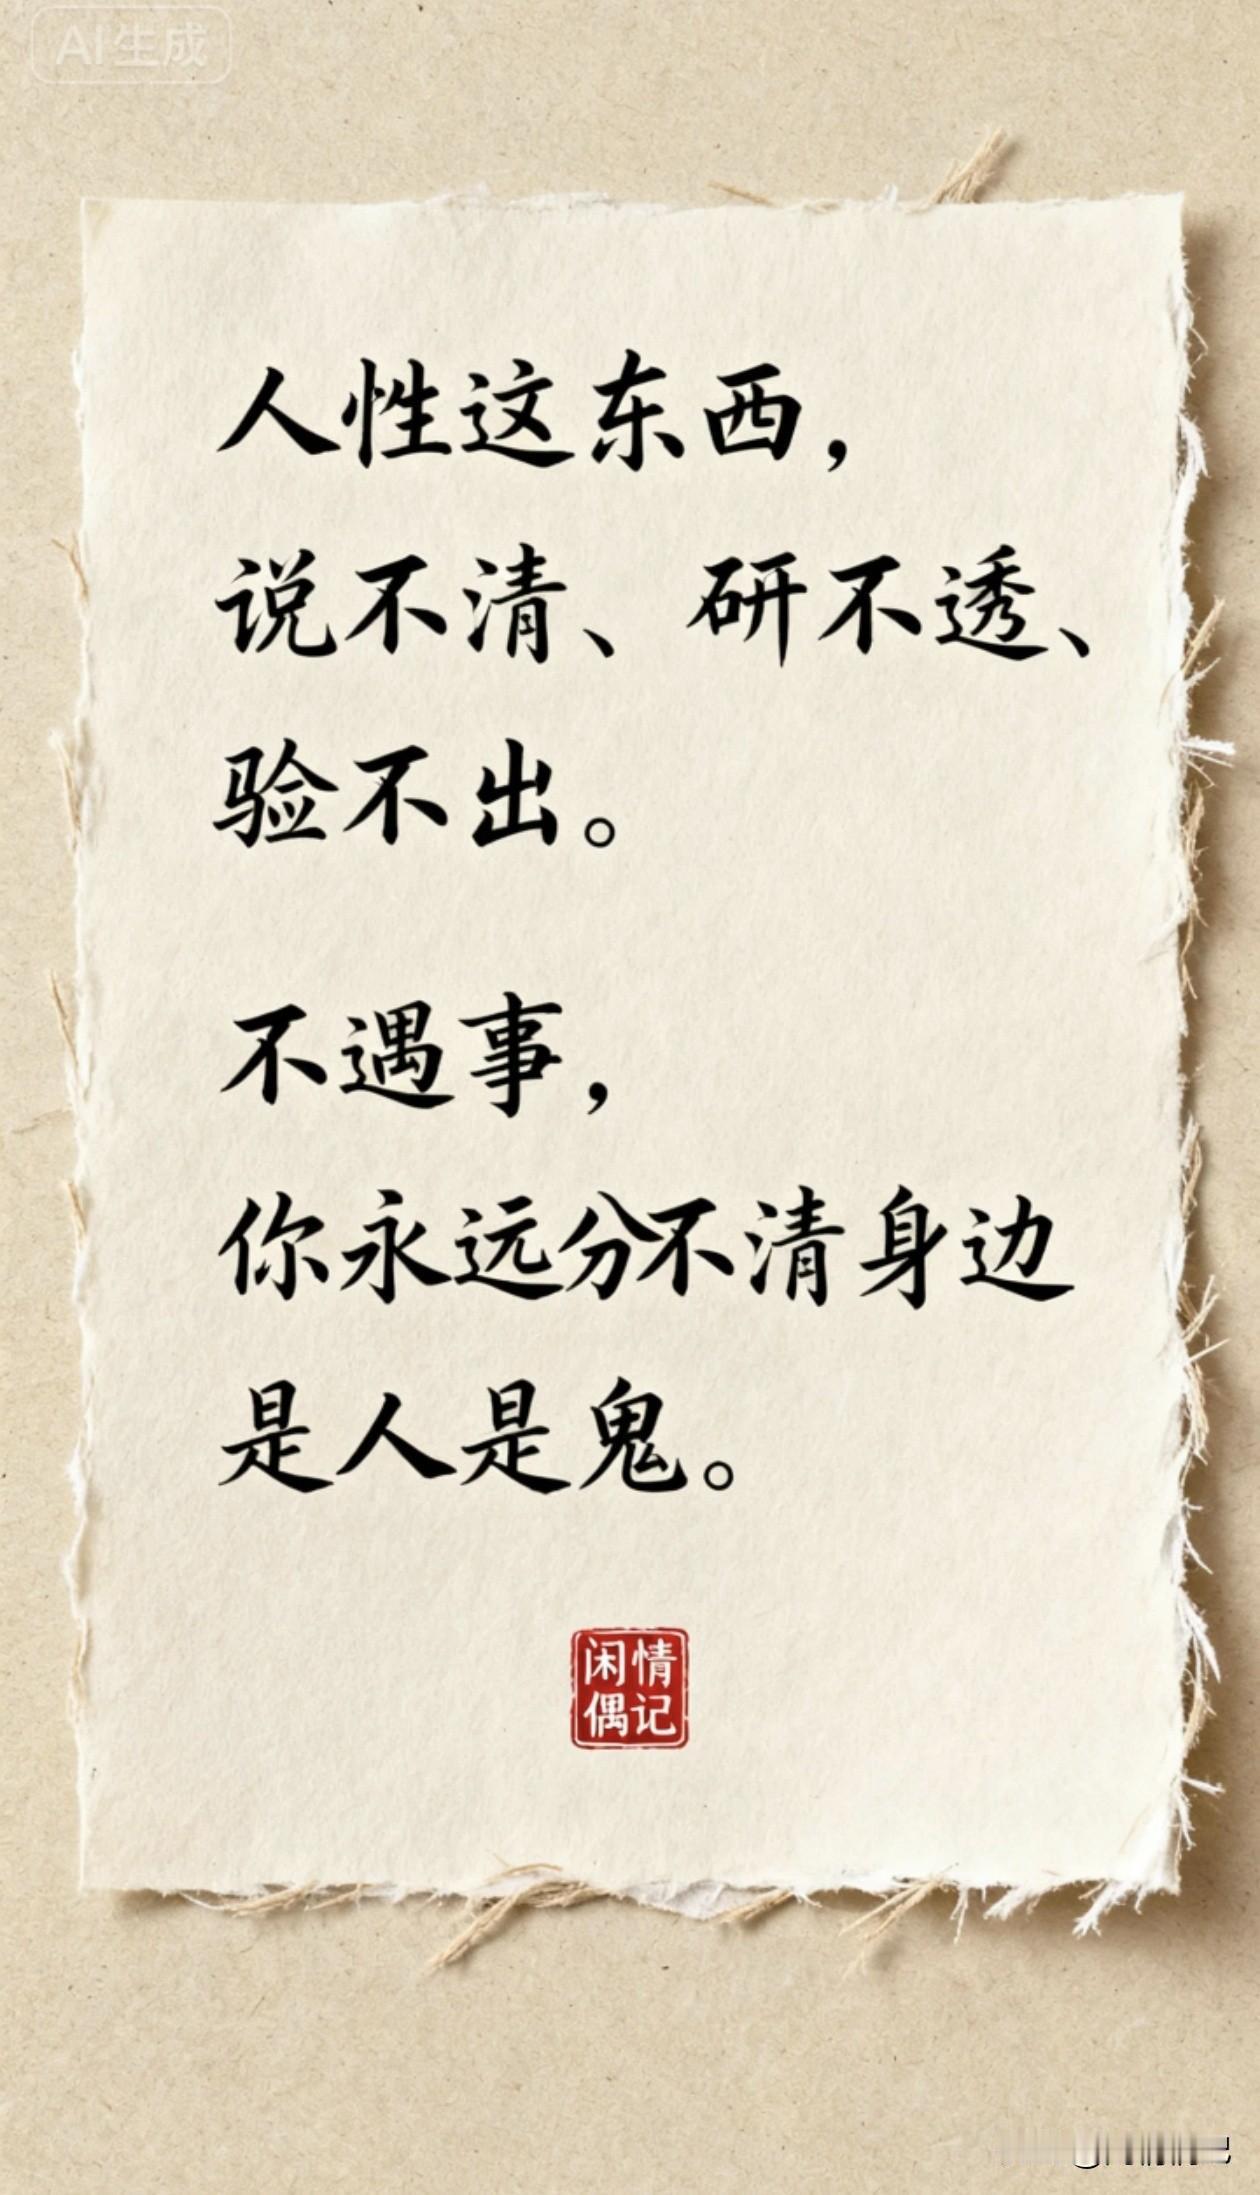 AI生成
人性这东西，
说不清、研不透、
验不出。
不遇事，
你永远分不清身边
是人是鬼。
闲情
偶记